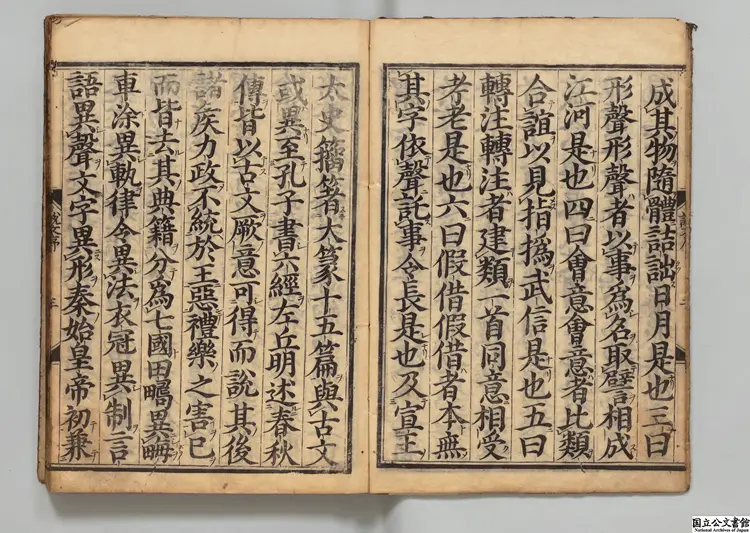 成其物隨體詰詘日月是也三曰
形聲形聲者以事爲名取譬相成
江河是也四曰會意會意者比類
合誼以見指撝武信是也五曰
轉注轉注者建類一首同意相受
考老是也六曰假借假借者本無
其字依聲託事令長是也及宣王
太史籒著大篆十五篇與古文
或異至孔子書六經左丘明述春秋
傳皆以古文厥意可得而說其後
諸矦力政不統於王惡禮樂之害已
而皆去其典籍分爲七國田疇異畮
車涂異軌律令異法衣冠異制言
語異聲文字異形秦始皇帝初兼
三
国立公文書館
National Archives of Japan